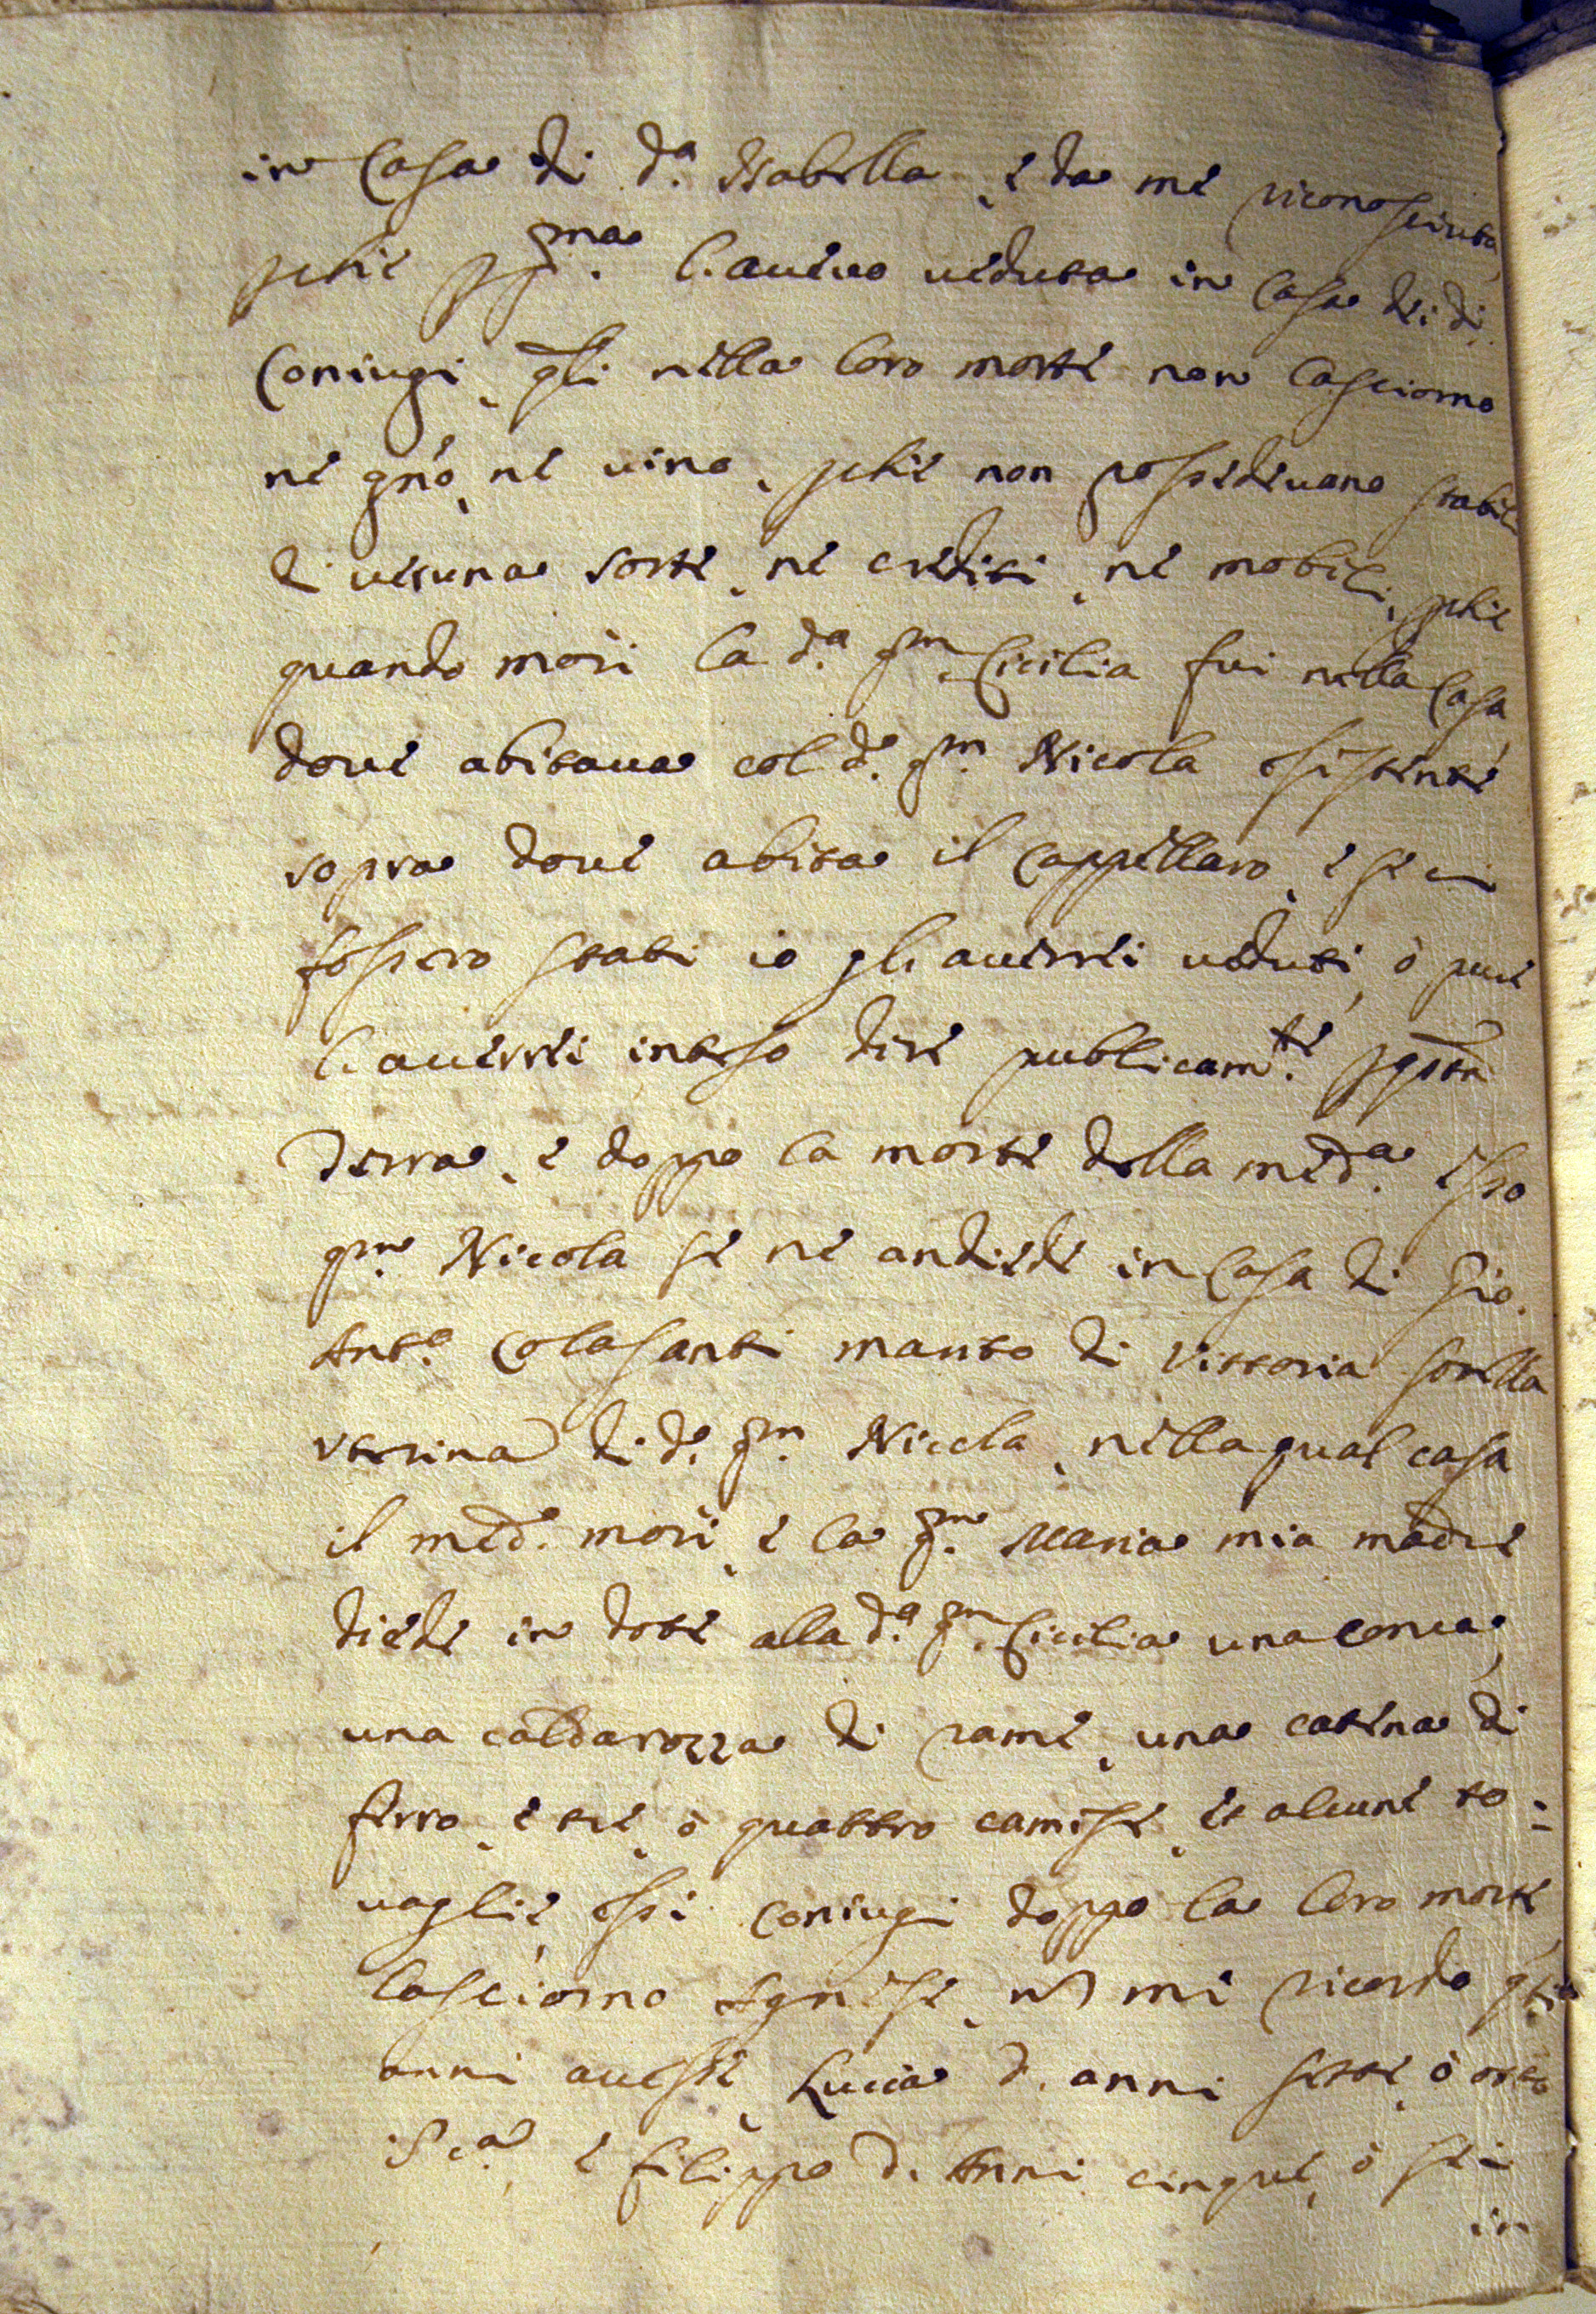 in Casa di d.a Isabella, e da me riconosciuta,
perche p.ma l'avevo veduta in casa di d.i
Coniugi, q.li nella loro morte non lasciorno
ne gr̃o, ne vino, perche non possedevano stabili
di veruna sorte, ne crediti, ne mobili, perche
quando morì la d.a q.m Cecilia fui nella Casa
dove abitava col d.o q.m Nicola esistente
sopra dove abita il Cappellaro, e se ci
fossero stati io gli averei veduti, ò pure
l'averei inteso dire publicam.te p questa
Terra, e doppo la morte della med.a esso
q.m Nicola se ne andiede in Casa di Gio.
Ant.o Colasanti marito di Vittoria sorella
uterina di d.o q.m Nicola, nella qual casa
il med. morì, e la q.m Maria mia madre
diede in dote alla d.a q.m Cecilia una conca,
una caldarozza di rame, una catena di
ferro, e tre, ò quattro camise, et alcune to=
vaglie, essi coniugi doppo la loro morte
lasciorno Agnese, nõ mi ricordo q.ti
anni avesse, Lucia d. anni sette, ò otto
c.a, e Filippo d. Anni cinque, ò sei
in